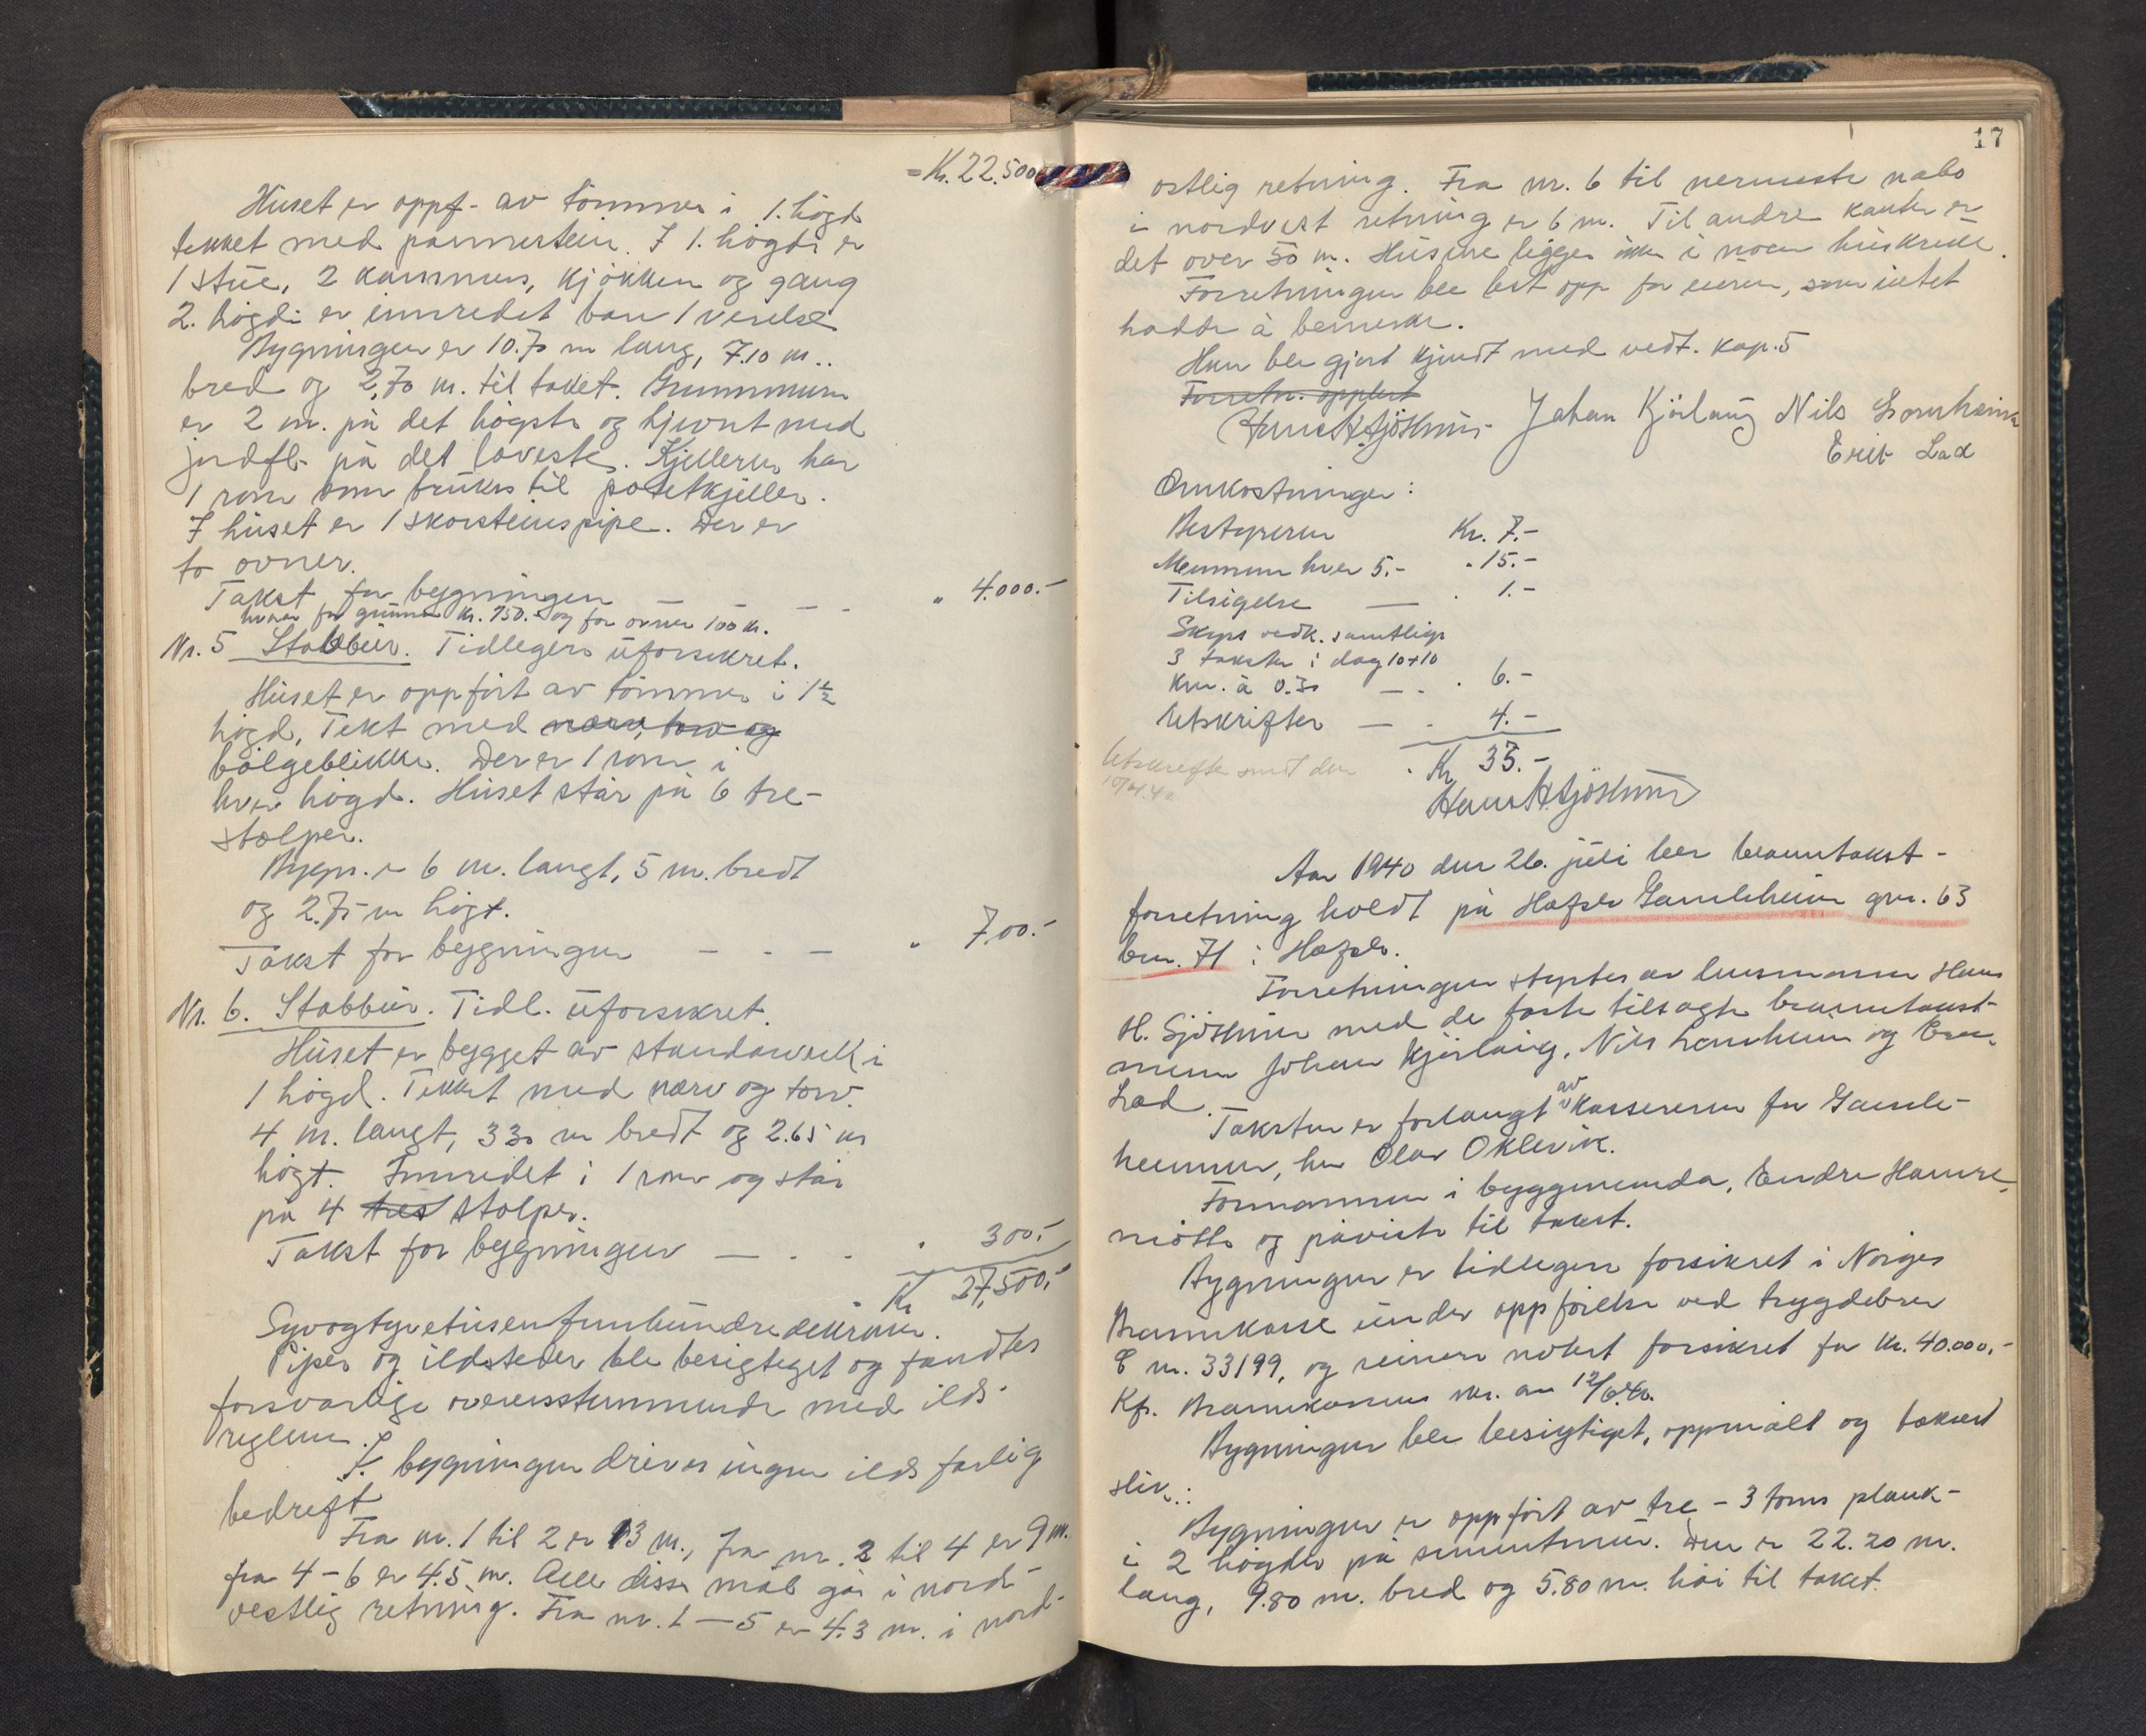 = Kr. 22.500
Huset er oppf. av tömmer i 1. högd
tekket med pannestein. I 1. högdi er
1 stue, 2 kammers, kjökken og gang
2. högdi er innredet bare 1 verelse
Bygningen er 10.70 m lang, 7.10 m..
bred og 2,70 m. til taket. Grunnmuren
er 2 m. på det högste og hjevnt med
jordfl. på det laveste. Kjelleren har
1 rom som brukes til potetkjeller.
I huset er 1 skorsteinspipe. Der er
to ovner.
Takst for bygningen — — - " 4.000.-
hvorav for grunnm. Kr. 750.- og for ovner 100 kr.
Nr. 5 Stabbur. Tidlegere uforsikret.
Huset er oppfört av tömmer i 1½
högd, Tekt med næver, torv og
bölgeblikk. Der er 1 rom i
hver högd. Huset står på 6 tre-
stolper.
Bygn. er 6 m. langt, 5 m. bredt
og 2.75 m högt.
Takst for bygningen — - — " 700.-
Nr. 6. Stabbur. Tidl. uforsikret.
Huset er bygget av standarverk i
1 högd. Tekket med nærv og torv.
4 m. langt, 3 30 m bredt og 2.65 m
högt. Innredet i 1 rom og står
på 4 tres stolper.
Takst for bygningen — - - " 300.-
Kr 27,500.-
Syvogtyvetusenfemhundredekroner.
Piper og ildsteder ble besigteget og fandtes
forsvarlige overensstemmende med ilds-
reglene.
I. bygningen drives ingen ildsfarlig
bedreft
Fra nr. 1 til 2 er 13 m., fra nr. 2 til 4 er 9 m.
fra 4 – 6 er 4.5 m. Alle disse mål går i nord-
vestlig retning. Fra nr. 1 — 5 er 4.3 m. i nord-
17
ostlig retning. Fra nr. 6 til nermeste nabo
i nordvest retning er 6 m. Til andre kanter er
det over 50 m. Husene ligger ikke i noen huskrede.
Forretningen ble lest opp for eieren, som intet
hadde å bemerke.
Han ble gjort kjendt med vedt. kap. 5
Forretn. opplest
Hans H. Sjöthun Johan Kjörlaug Nils Lomheim
Erik Lad
Omkostninger:
Bestyreren Kr. 7.-
Mennene hver 5.- " 15.-
Tilsigelse — " 1.-
Skyss vedk. samtlige
3 takster i dag 10+10
km. à 0.30 — - " 6.-
Utskrifter — - 4.-
Kr 33.-
Utskrefter sendt den
10/4.40
Hans H. Sjöthun
Aar 1940 den 26. juli ble branntakst-
forretning holdt på Hafslo Gamleheim gnr. 63
bnr. 71 i Hafslo.
Forretningen styrtes av lensmannen Hans
H. Sjöthun med de faste tilsagte branntakst-
menn Johan Kjörlaug, Nils Lomheim og Erik
Lad.
Taksten er forlangt av kassereren for Gamle-
heimen, hr. Olav Oklevik.
Formannen i byggnemnda, Endre Hamre,
mötte og påviste til takst.
Bygningen er tidlegere forsikret i Norges
Brannkasse under oppförelse ved trygdebrev
E nr. 33199, og seinere notert forsikret for Kr. 40.000,-
Kfr. Brannkassens skr. av 12/6.40.
Bygningen ble besigtiget, oppmålt og taksert
slik.:
Bygningen er oppfört av tre – 3 toms plank-
i 2 högder på sementmur. Den er 22.20 m.
lang, 9.80 m. bred og 5.80 m. höi til taket.